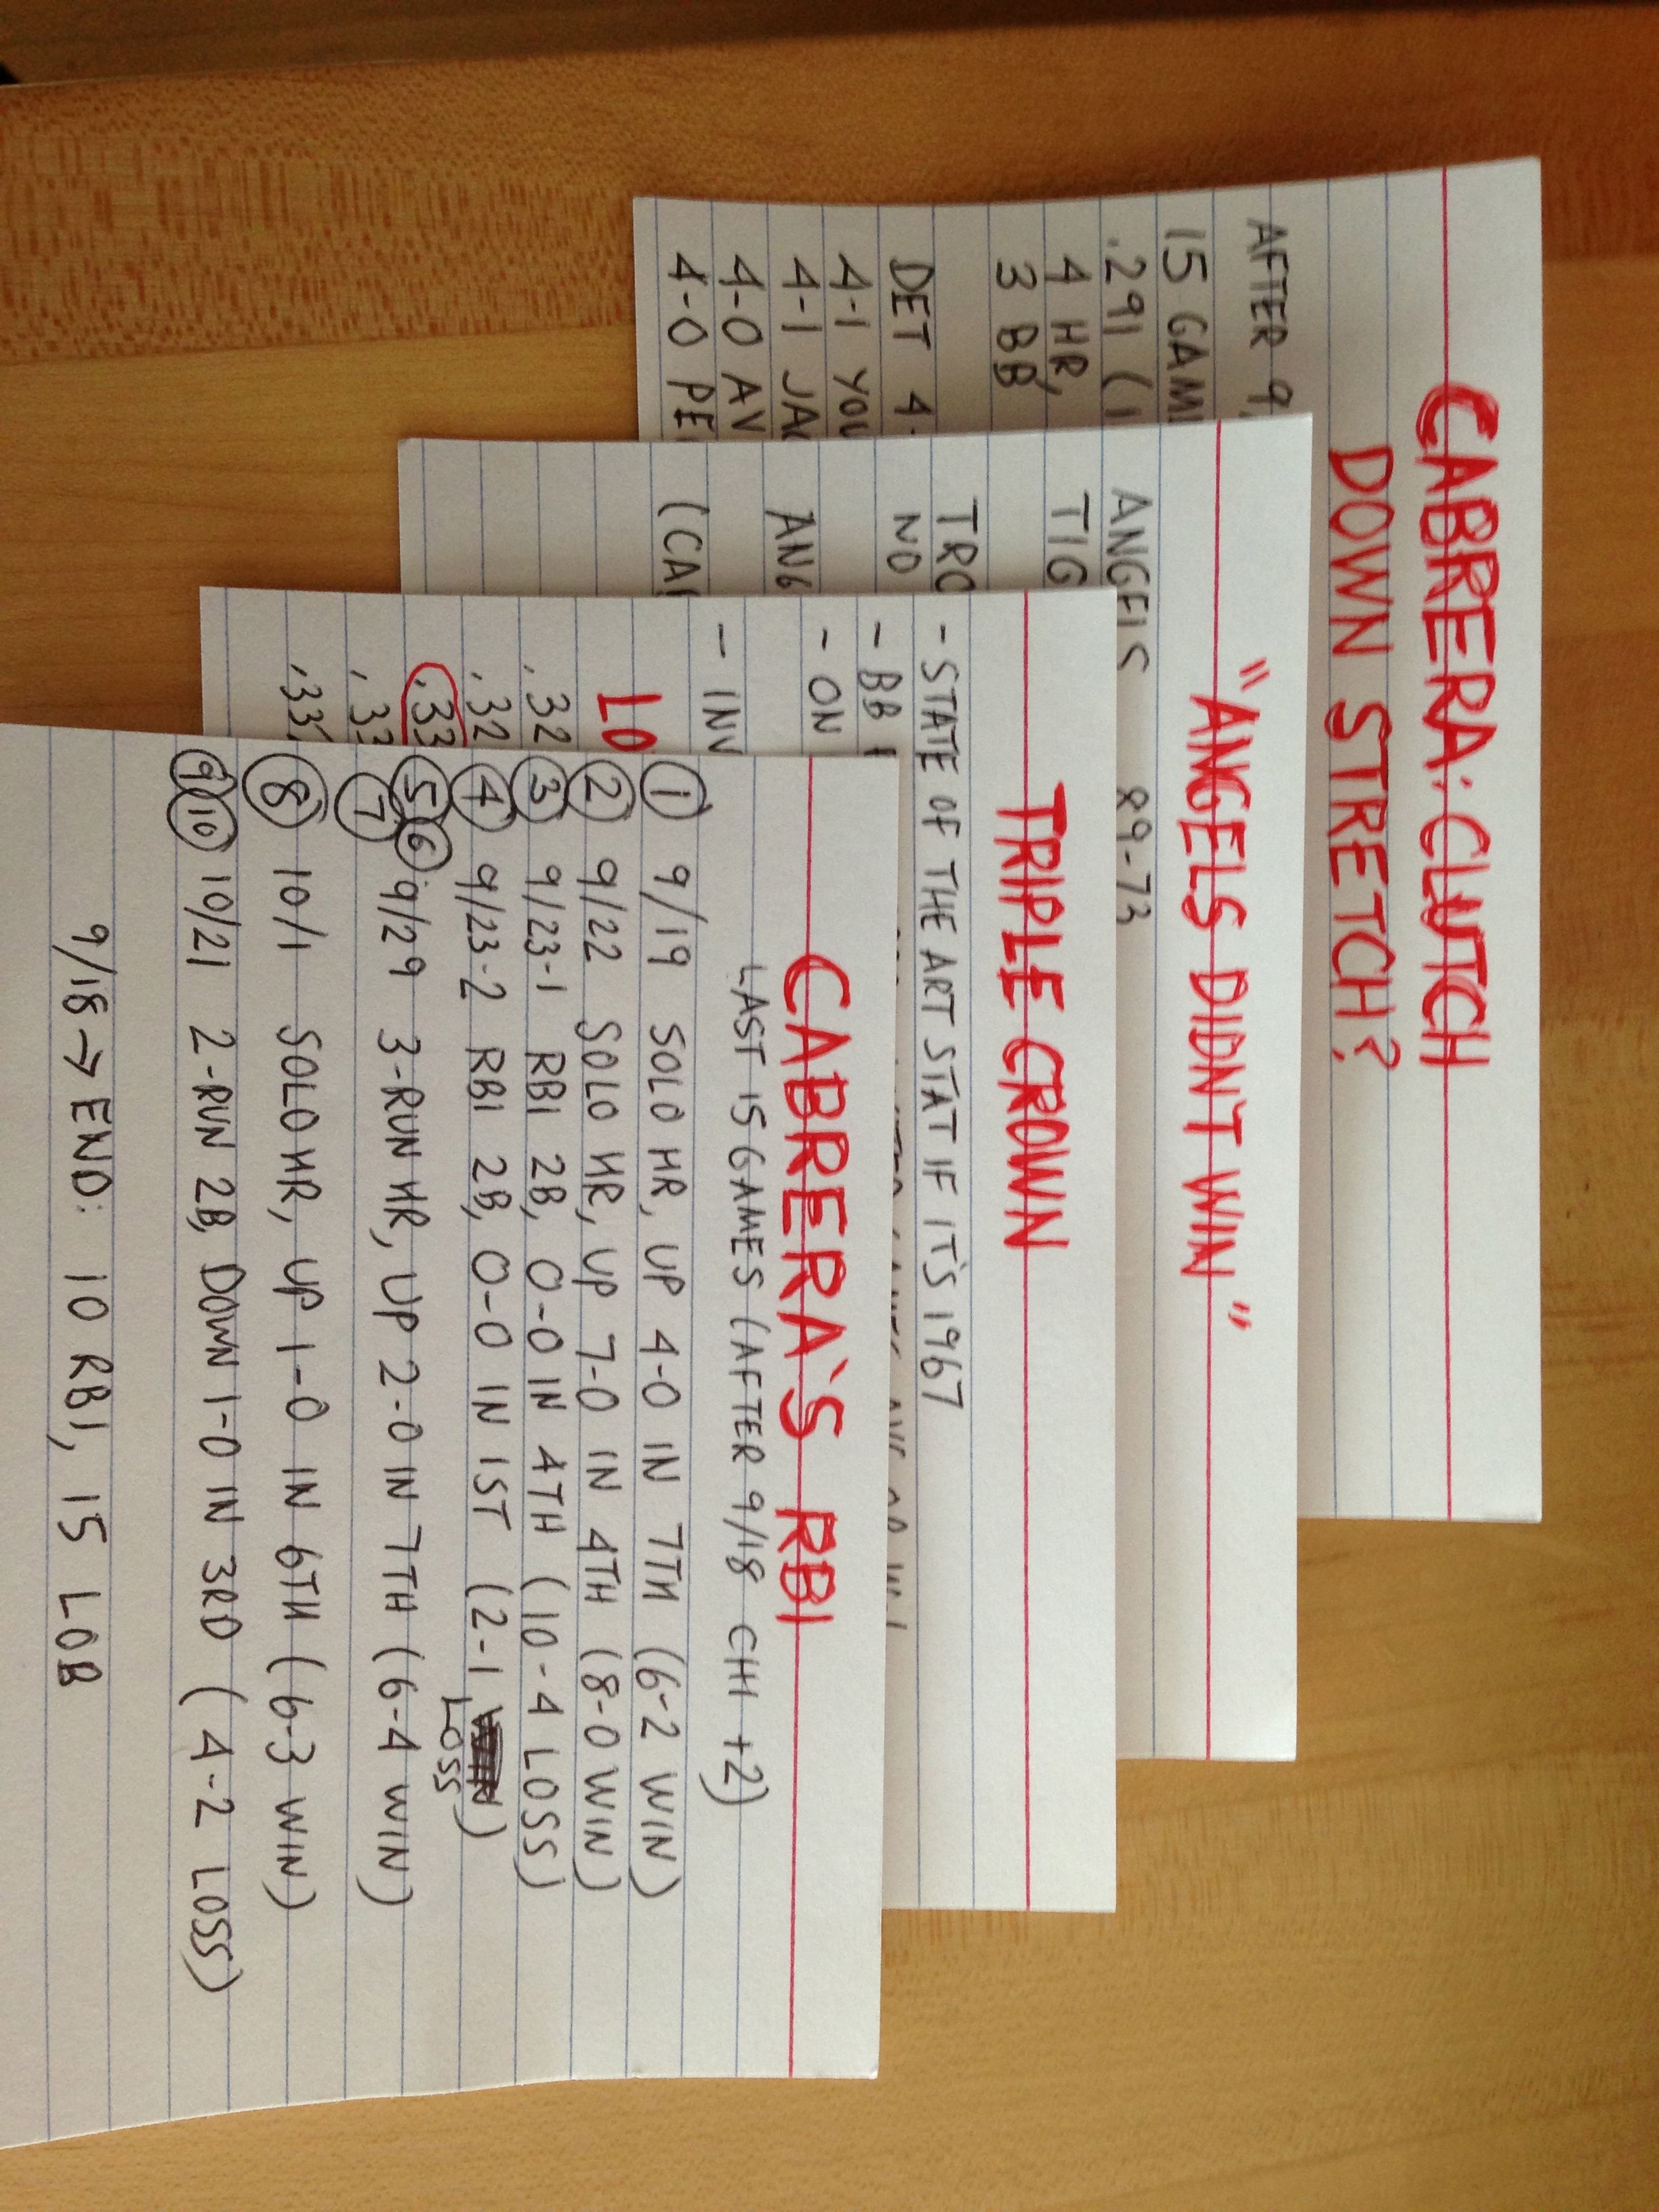 CABRERA: CLUTCH
DOWN STRETCH?
AFTER 9/
15 GAM
.291 (1
4 HR,
3 BB
DET 4-
4-1 YOU
4-1 JA
4-0 AV
4-0 PE
"ANGELS DIDN'T WIN"
ANGELS 89-73
TIG
TRO
NO
ANG
(CA
TRIPLE CROWN
- STATE OF THE ART STAT IF IT'S 1967
- BB
- ON
- INV
LO
.32
.32
.33
.33
.33
CABRERA'S RBI
LAST 15 GAMES (AFTER 9/18 CHI +2)
1 9/19 SOLO HR, UP 4-0 IN 7TH (6-2 WIN)
2 9/22 SOLO HR, UP 7-0 IN 4TH (8-0 WIN)
3 9/23-1 RBI 2B, 0-0 IN 4TH (10-4 LOSS)
4 9/23-2 RBI 2B, 0-0 IN 1ST (2-1 WIN)
LOSS
5 6 7 9/29 3-RUN HR, UP 2-0 IN 7TH (6-4 WIN)
8 10/1 SOLO HR, UP 1-0 IN 6TH (6-3 WIN)
9 10 10/21 2-RUN 2B, DOWN 1-0 IN 3RD (4-2 LOSS)
9/18 → END: 10 RBI, 15 LOB